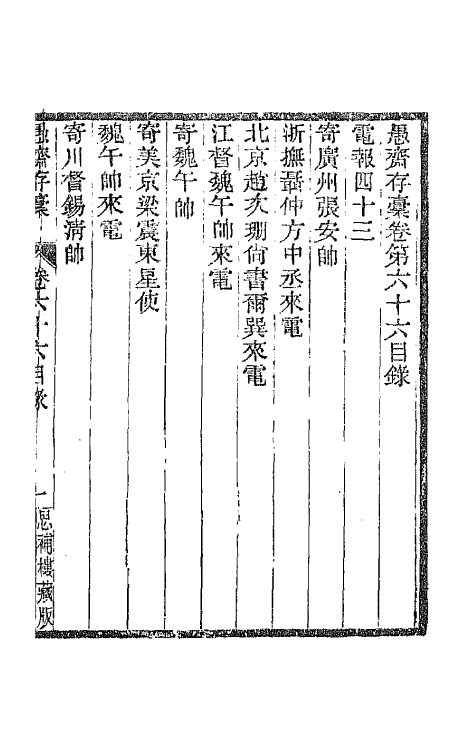 愚齋存稾卷第六十六目錄
電報四十三
寄廣州張安帥
浙撫聶仲方中丞來電
北京趙次珊尙書爾巽來電
江督魏午帥來電
寄魏午帥
寄美京梁震東星使
魏午帥來電
寄川督錫淸帥
愚齋存稾 卷六十六目錄 一 思補樓藏版